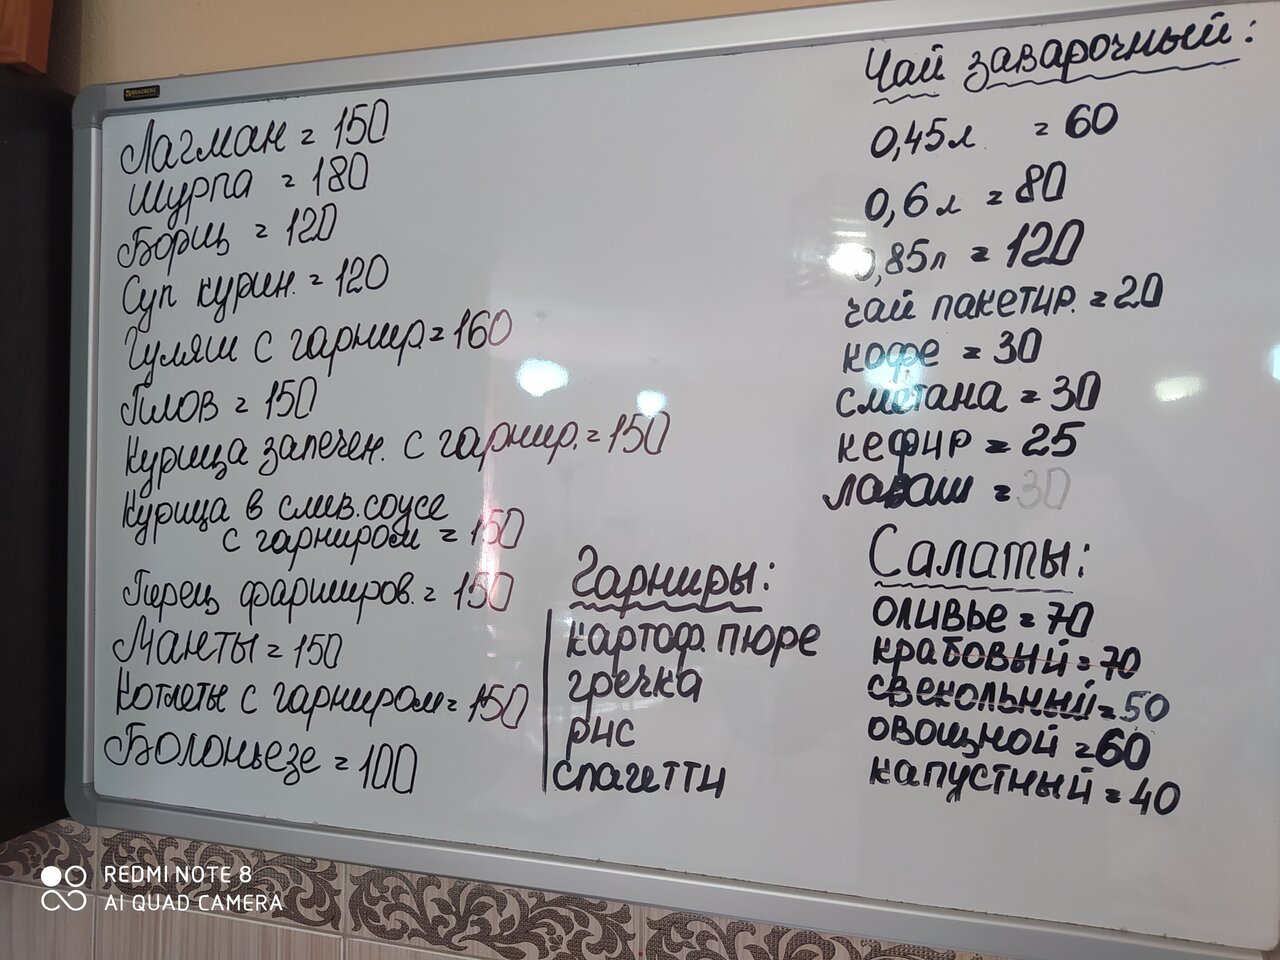 BRAUBERG
Лагман = 150
Шурпа = 180
Борщ = 120
Суп курин. = 120
Гуляш с гарнир = 160
Плов = 150
Курица запечен. с гарнир. = 150
Курица в слив. соусе
с гарниром = 150
Перец фарширов. = 150
Манты = 150
Котлеты с гарниром = 150
Болоньезе = 100
Гарниры:
картоф. пюре
гречка
рис
спагетти
Чай заварочный:
0,45л = 60
0,6л = 80
0,85л = 120
чай пакетир. = 20
кофе = 30
сметана = 30
кефир = 25
лаваш = 30
Салаты:
оливье = 70
крабовый = 70
свекольный = 50
овощной = 60
капустный = 40
REDMI NOTE 8
AI QUAD CAMERA